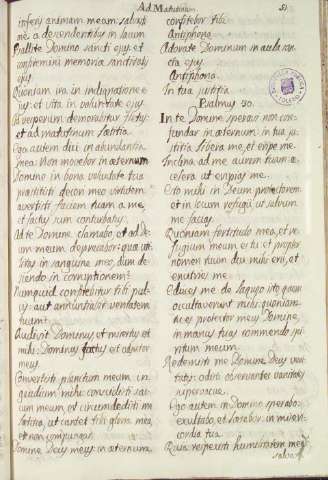 Ad Matutinum
51
inferni animam meam: salvasti
me a descendentibus in lacum
Psallite Domino sancti ejus: et
confitemini memoriæ sanctitatis
ejus.
Quoniam ira in indignatione e-
jus: et vita in voluntate ejus.
Ad vesperum demorabitur fletus:
et ad matutinum lætitia.
Ego autem dixi in abundantia
mea: Non movebor in æternum
Domino in bona voluntate tua
præstitisti decori meo virtutem.
avertisti faciem tuam a me,
et factus sum conturbatus.
Ad te Domine clamabo: et ad De-
um meum deprecabor: quæ uti-
litas in sanguine meo, dum de-
scendo in corruptionem?
Numquid confitebitur tibi pul-
vis: aut annuntiabit veritatem
tuam?
Audivit Dominus et misertus est
mihi: Dominus factus est adjutor
meus.
Convertisti planctum meum in
gaudium mihi: conscidisti sac-
cum meum, et circumdedisti me
lætitia, ut cantet tibi gloria mea,
et non compungar.
Domine Deus meus: in æternum,
confitebor tibi.
Antiphona.
Adorate Dominum in aula san-
cta ejus.
Antiphona.
In tua justitia.
Psalmus 30.
In te Domine speravi non con-
fundar in æternum: in tua ju-
stitia libera me, et eripe me.
Inclina ad me aurem tuam: a-
ccelera ut eripias me.
Esto mihi in Deum protectorem
et in locum refugii ut salvum
me facias.
Quoniam fortitudo mea, et re-
fugium meum es tu: et propter
nomen tuum deduces mihi, et
enutries me.
Educes me de laqueo isto, quem
occultaverunt mihi: quoniam
tu es protector meus Domine,
in manus tuas commendo spi-
ritum meum.
Redemisti me Domine Deus veri-
tatis: odisti observantes vanitates
supervacue.
Ego autem in Domino speravi:
exultabo, et lætabor: in miseri-
cordia tua.
Quia respexisti humilitatem meam
salvas-